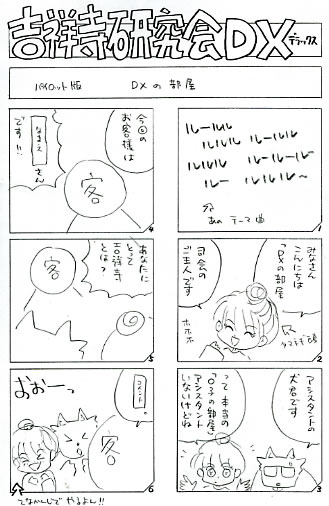 吉祥寺研究会DX
デラックス
パイロット版 DXの部屋
ルールルル
ルルル ルールル
ルルル ルールールー
ルー ルルル〜
あのテーマ曲
1
みなさん
こんにちは
「DXの部屋」
司会の
ご主人です
ホホホ
タマネギ頭
2
アシスタントの
犬君です
って本当の
「○子の部屋」
アシスタント
いないけどね
3
今回の
お客様は
なまえ さん
です!!
客
4
あなたに
とって
吉祥寺
とは?
客
5
コメント
おおーっ
客
6
てなかんじでやるよん!!